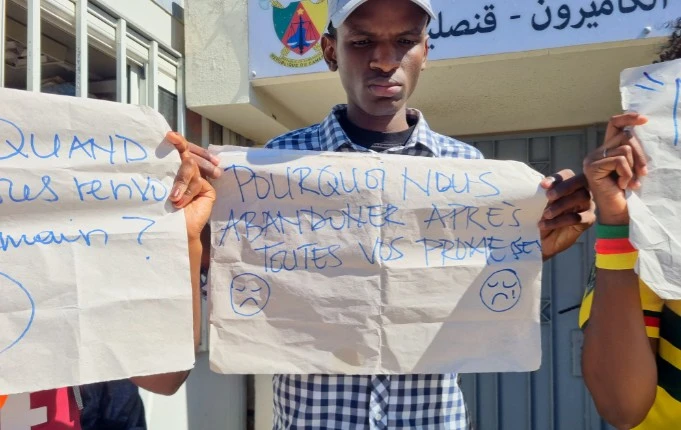 الكاميرون - قنصلية
QUAND
main ?
POURQUOI NOUS
ABANDONNER APRÈS
TOUTES VOS PROMESSES